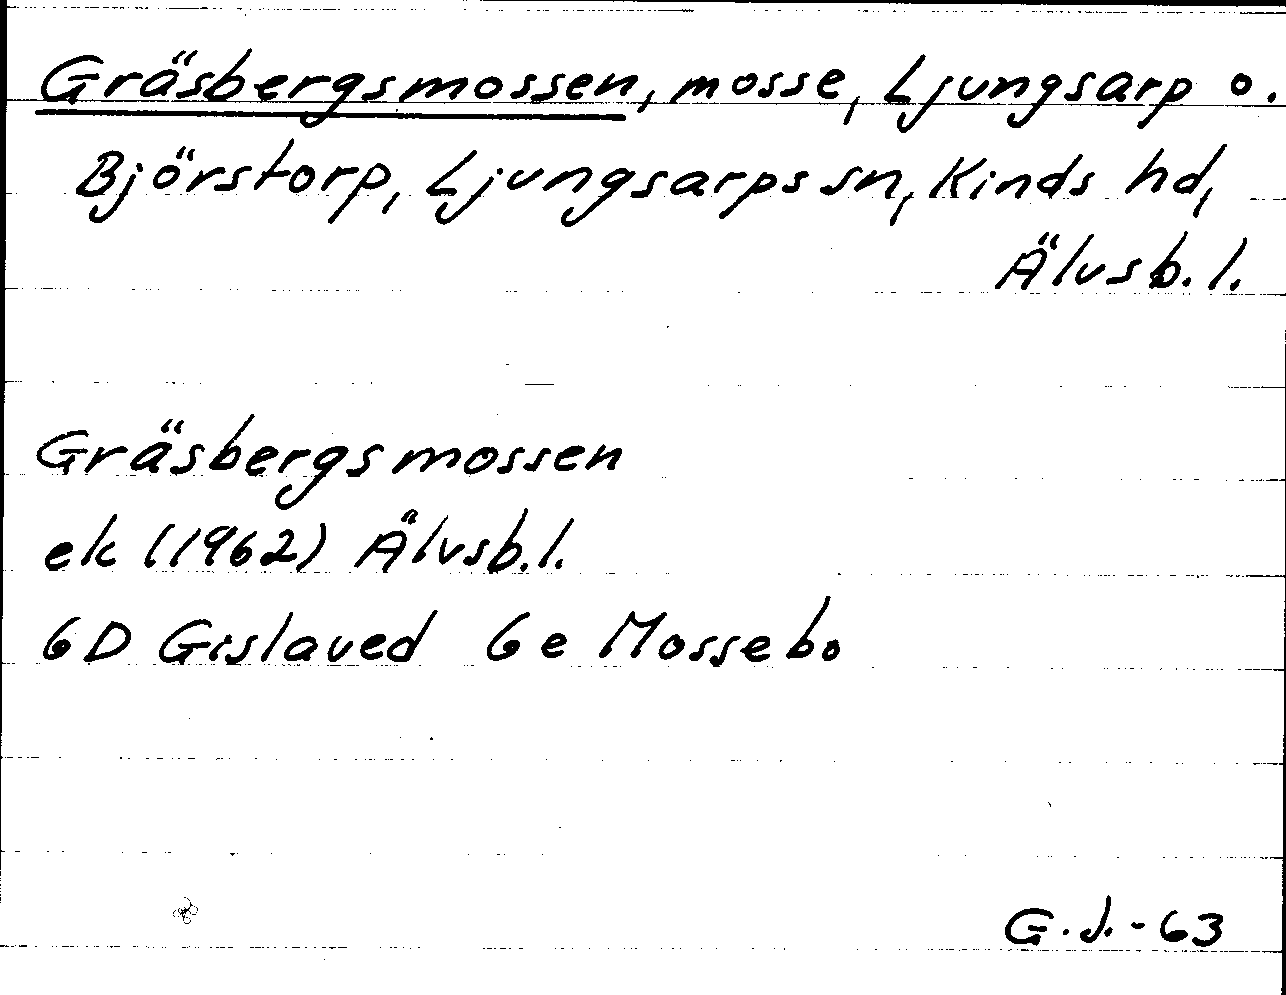 Gräsbergsmossen, mosse, Ljungsarp o.
Björstorp, Ljungsarps sn, Kinds hd,
Älvsb. l.
Gräsbergsmossen
ek (1962) Älvsb.l.
6D Gislaved 6e Mossebo
G.J.-63